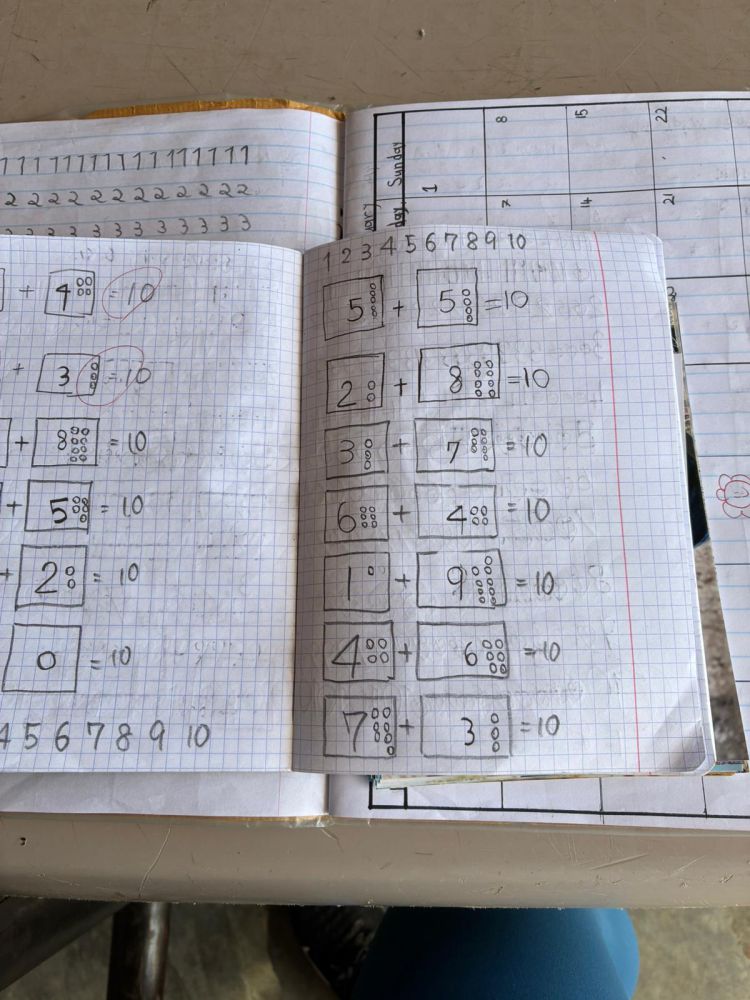 1 1 1 1 1 1 1 1 1 1 1 1 1 1 1 1 1 1
2 2 2 2 2 2 2 2 2 2 2 2 2
2 3 3 3 3 3 3 3 3 3 3 3
+ 4 = 10
+ 3 = 10
+ 8 = 10
+ 5 = 10
+ 2 = 10
0 = 10
4 5 6 7 8 9 10
1 2 3 4 5 6 7 8 9 10
5 + 5 = 10
2 + 8 = 10
3 + 7 = 10
6 + 4 = 10
1 + 9 = 10
4 + 6 = 10
7 + 3 = 10
Sunday
1
8
15
22
day
7
14
21